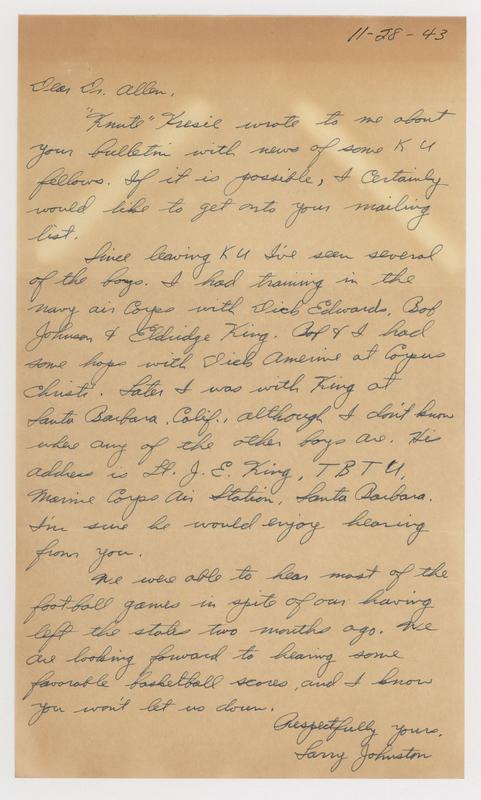 11-28-43
Dear Dr. Allen,
"Knute" Kresie wrote to me about
your bulletin with news of some K U
fellows. If it is possible, I certainly
would like to get onto your mailing
list.
Since leaving K U I've seen several
of the boys. I had training in the
navy air Corps with Dick Edwards, Bob
Johnson & Eldridge King. Bob & I had
some hops with Dick Amerine at Corpus
Christi. Later I was with King at
Santa Barbara, Calif., although I don't know
where any of the other boys are. His
address is Lt. J. E. King, T B T U,
Marine Corps Air Station, Santa Barbara.
I'm sure he would enjoy hearing
from you.
We were able to hear most of the
football games in spite of our having
left the states two months ago. We
are looking forward to hearing some
favorable basketball scores, and I know
you won't let us down.
Respectfully yours,
Larry Johnston